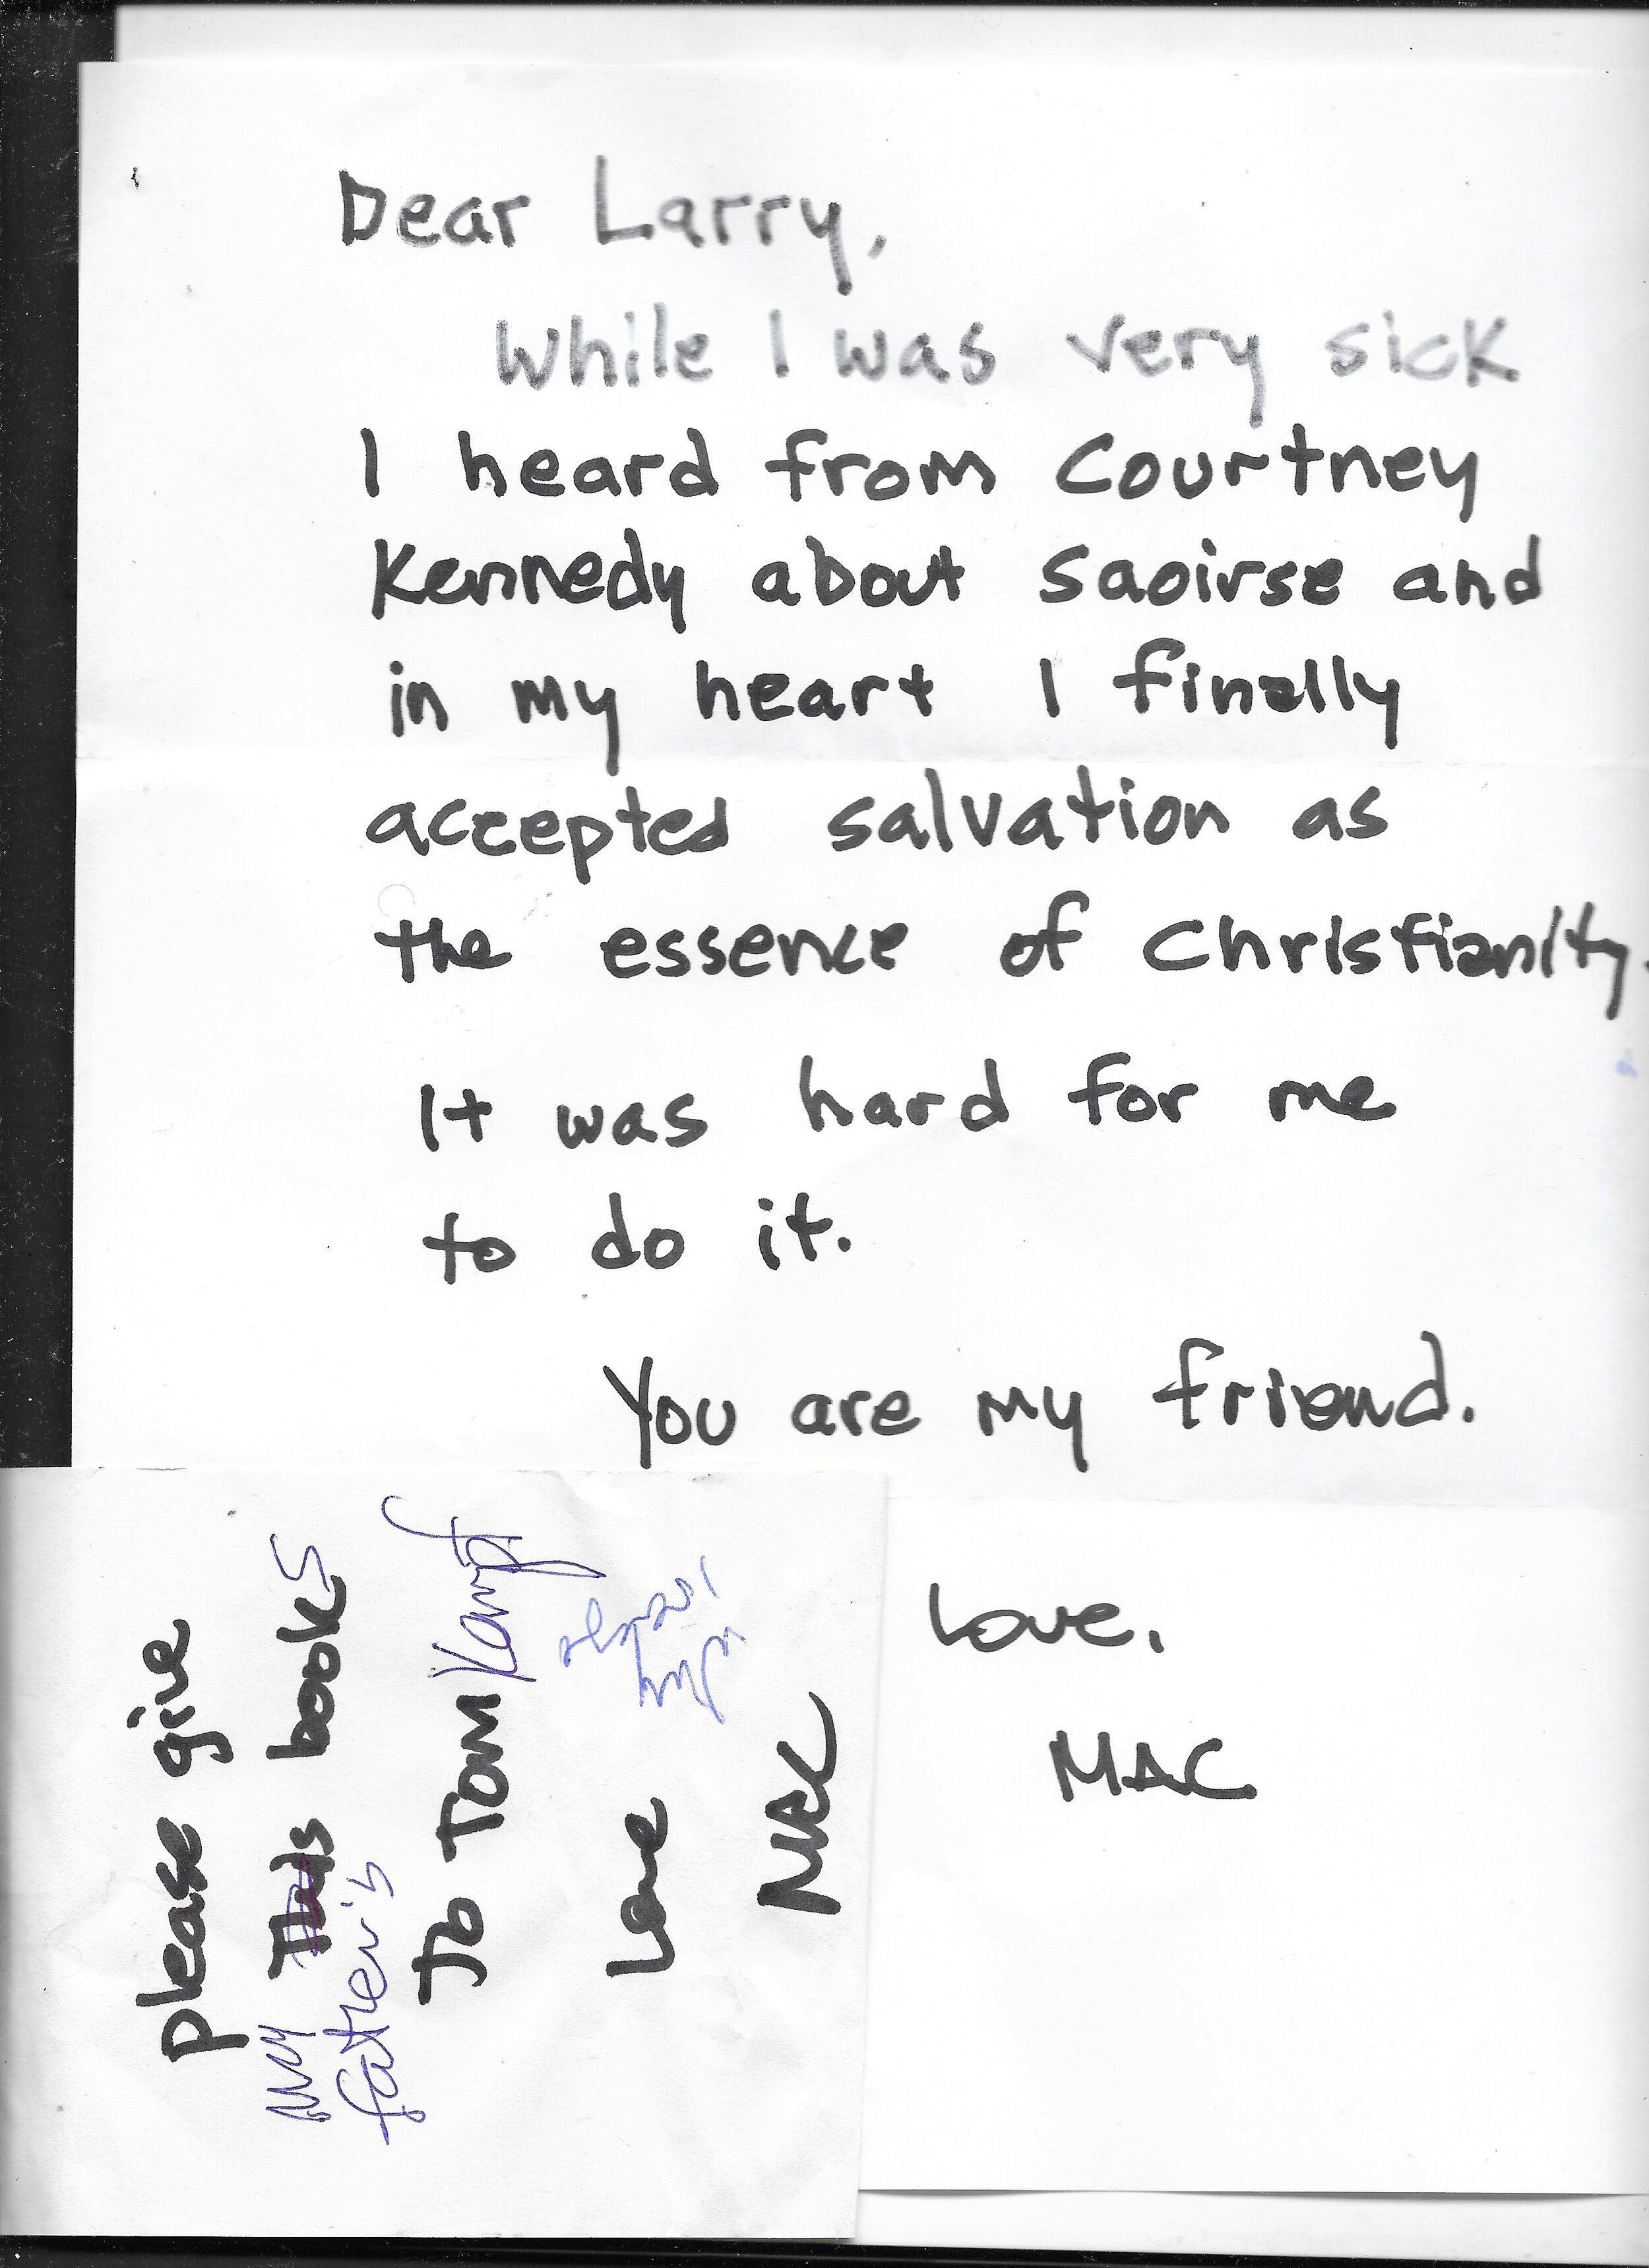 Dear Larry,
While I was very sick
I heard from Courtney
Kennedy about Saoirse and
in my heart I finally
accepted salvation as
the essence of Christianity.
It was hard for me
to do it.
You are my friend.
Love,
MAC
please give
my This books
father's
To Tom Kampf
Love
MAC